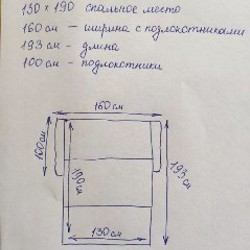 130 х 190 спальное место
160 см — ширина с подлокотниками
193 см - длина
100 см - подлокотники
160 см
100 см
190 см
193 см
130 см